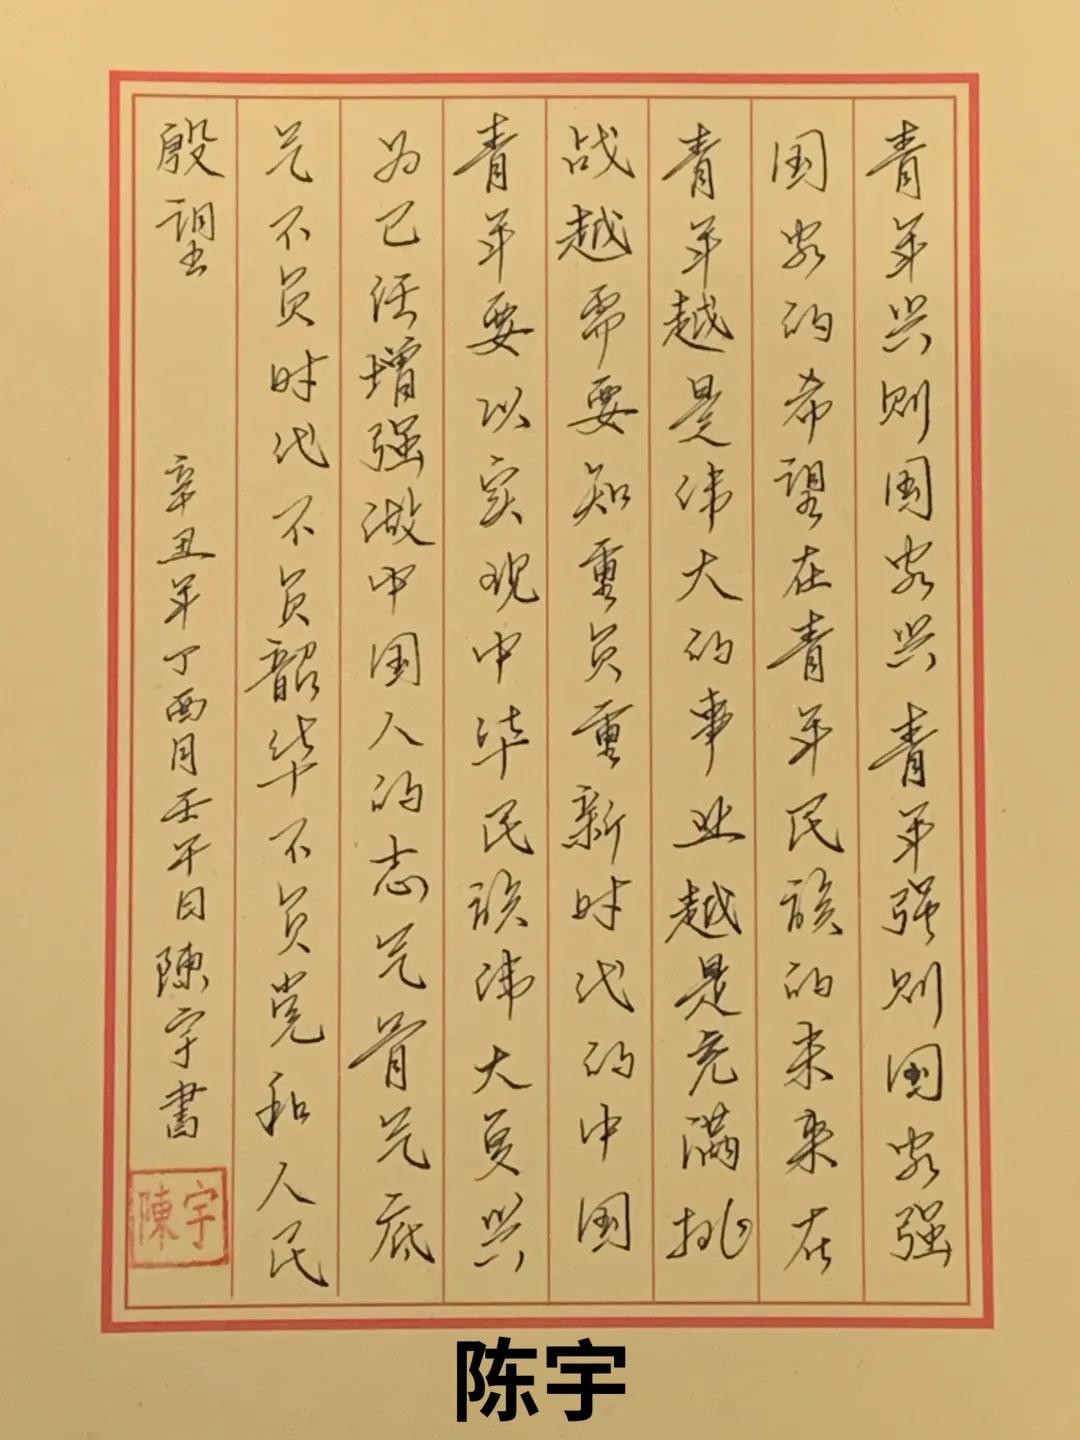 青年兴则国家兴青年强则国家强
国家的希望在青年民族的未来在
青年越是伟大的事业越是充满挑
战越需要知重负重新时代的中国
青年要以实现中华民族伟大复兴
为己任增强做中国人的志气骨气底
气不负时代不负韶华不负党和人民
殷望
辛丑年丁酉月壬午日陳宇書
陳宇
陈宇